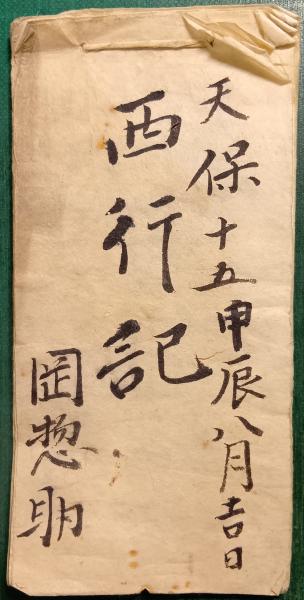 天保十五甲辰八月吉日
西行記
岡惣明